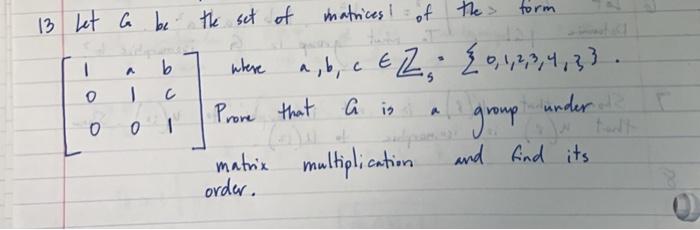 13 Let G be the set of matrices of the form
1 a b
0 1 c
0 0 1
where a, b, c ∈ Z₅ = {0,1,2,3,4,3}.
Prove that G is a group under
matrix multiplication and find its
order.